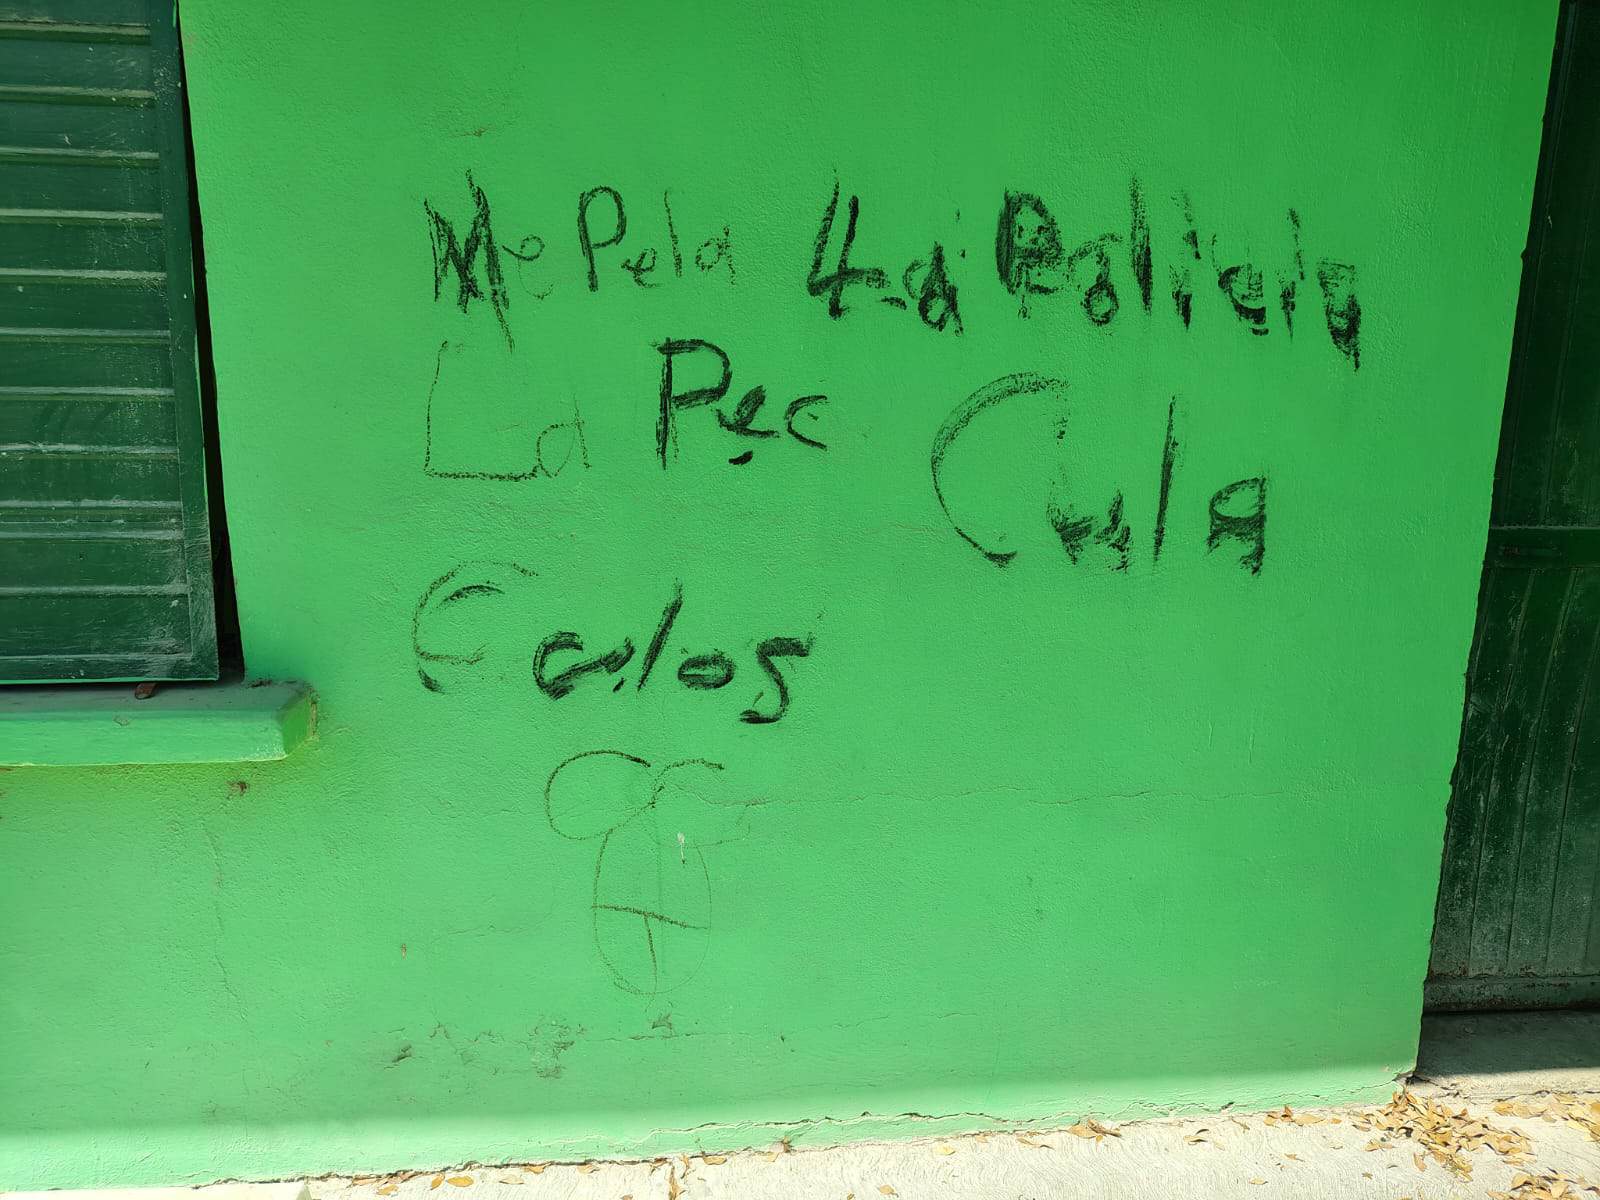 Me Pela La Policia
La Pec Cula
Carlos